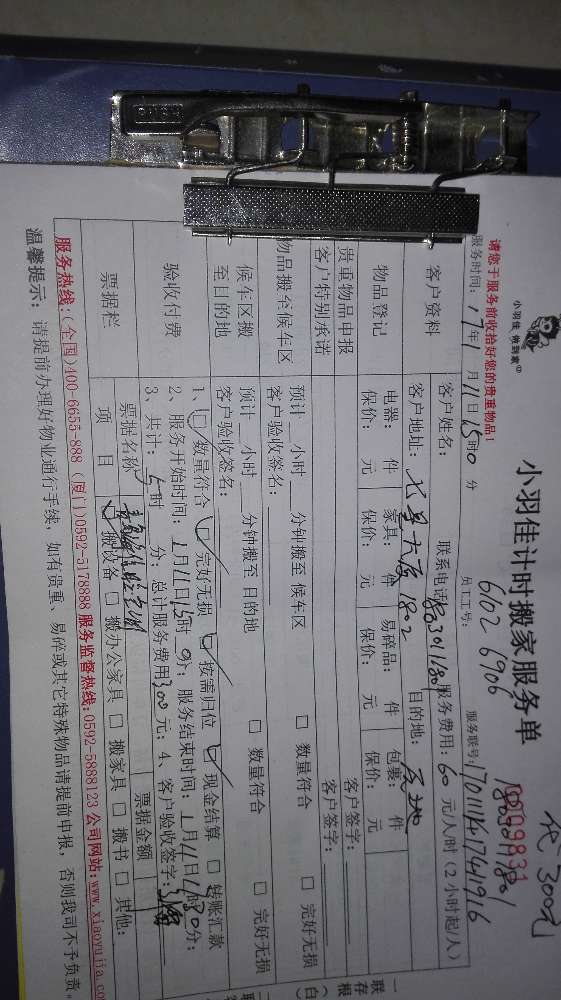 小羽佳 做到家
小羽佳计时搬家服务单
请您于服务前收拾好您的贵重物品！
员工工号：6102 6906
服务联号：170111417441916
服务时间：17年1月11日15时0分
客户资料
客户姓名：
联系电话
服务费用：60元/人/时（2小时起/人）
客户地址：七星大厦1802
目的地：
物品登记
电器： 件 家具： 件 易碎品： 件 包裹： 件
保价： 元 保价： 元 保价： 元 保价： 元
贵重物品申报
客户签字：
客户特别承诺
客户签字：
物品搬至候车区
预计 小时 分钟搬至 候车区 □ 数量符合 □ 完好无损
客户验收签名：
候车区搬至目的地
预计 小时 分钟搬至 目的地 □ 数量符合 □ 完好无损
客户验收签名：
验收付费
1、 数量符合 完好无损 按需归位 现金结算 □ 转账汇款
2、服务开始时间：1月11日15时 分；服务结束时间：1月11日 时30分；
3、共计：5时 分；总计服务费用300元；4、客户验收签字：
票据栏
票据名称
票据金额
项目
搬设备 □ 搬办公家具 □ 搬家具 □ 搬书 □ 其他：
服务热线：(全国)400-6655-888（厦门)0592-5178888 服务监督热线：0592-5888123 公司网站：www.xiaoyujia.co
温馨提示：请提前办理好物业通行手续，如有贵重、易碎或其它特殊物品请提前申报，否则我司不予负责。